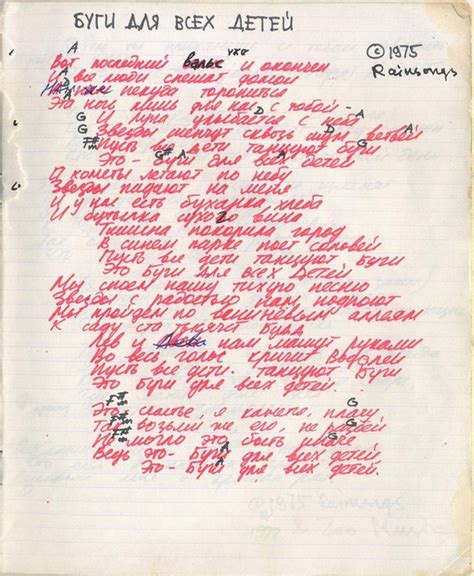 БУГИ ДЛЯ ВСЕХ ДЕТЕЙ
©1975
Rainsongs
A
Вот последний вальс уже и окончен
A
И все люди спешат домой
D
Нам некуда торопиться
A
Эта ночь лишь для нас с тобой
A
G D A
И Луна улыбается с неба
G D A
Звезды шепчут сквозь шум ветвей
F# G
Пусть все дети танцуют буги
G# A A
Это - буги для всех детей
И кометы летают по небу
Звезды падают на меня
И у нас есть буханка хлеба
И бутылка вина
Тишина покорила город
В синем парке поет соловей
Пусть все дети танцуют буги
Это буги для всех детей
Мы споем нашу тихую песню
Звезды с радостью нам подпоют
Мы пройдем по вишневым аллеям
К саду ста тысяч Будд
Лев и Дева нам машут руками
Во весь голос кричит Водолей
Пусть все дети танцуют буги
Это буги для всех детей.
F# G
Это счастье, я, кажется, плачу
F# G
Так возьми же его, не разбей
F#
Не могло это быть иначе
A
Ведь это - буги для всех детей
A
Это - буги для всех детей.